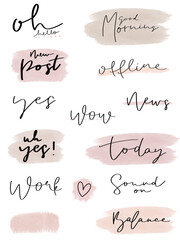 oh
hello
Good
Morning
New
Post
offline
yes
Wow
News
uh
yes!
today
Work
Sound
on
Balance